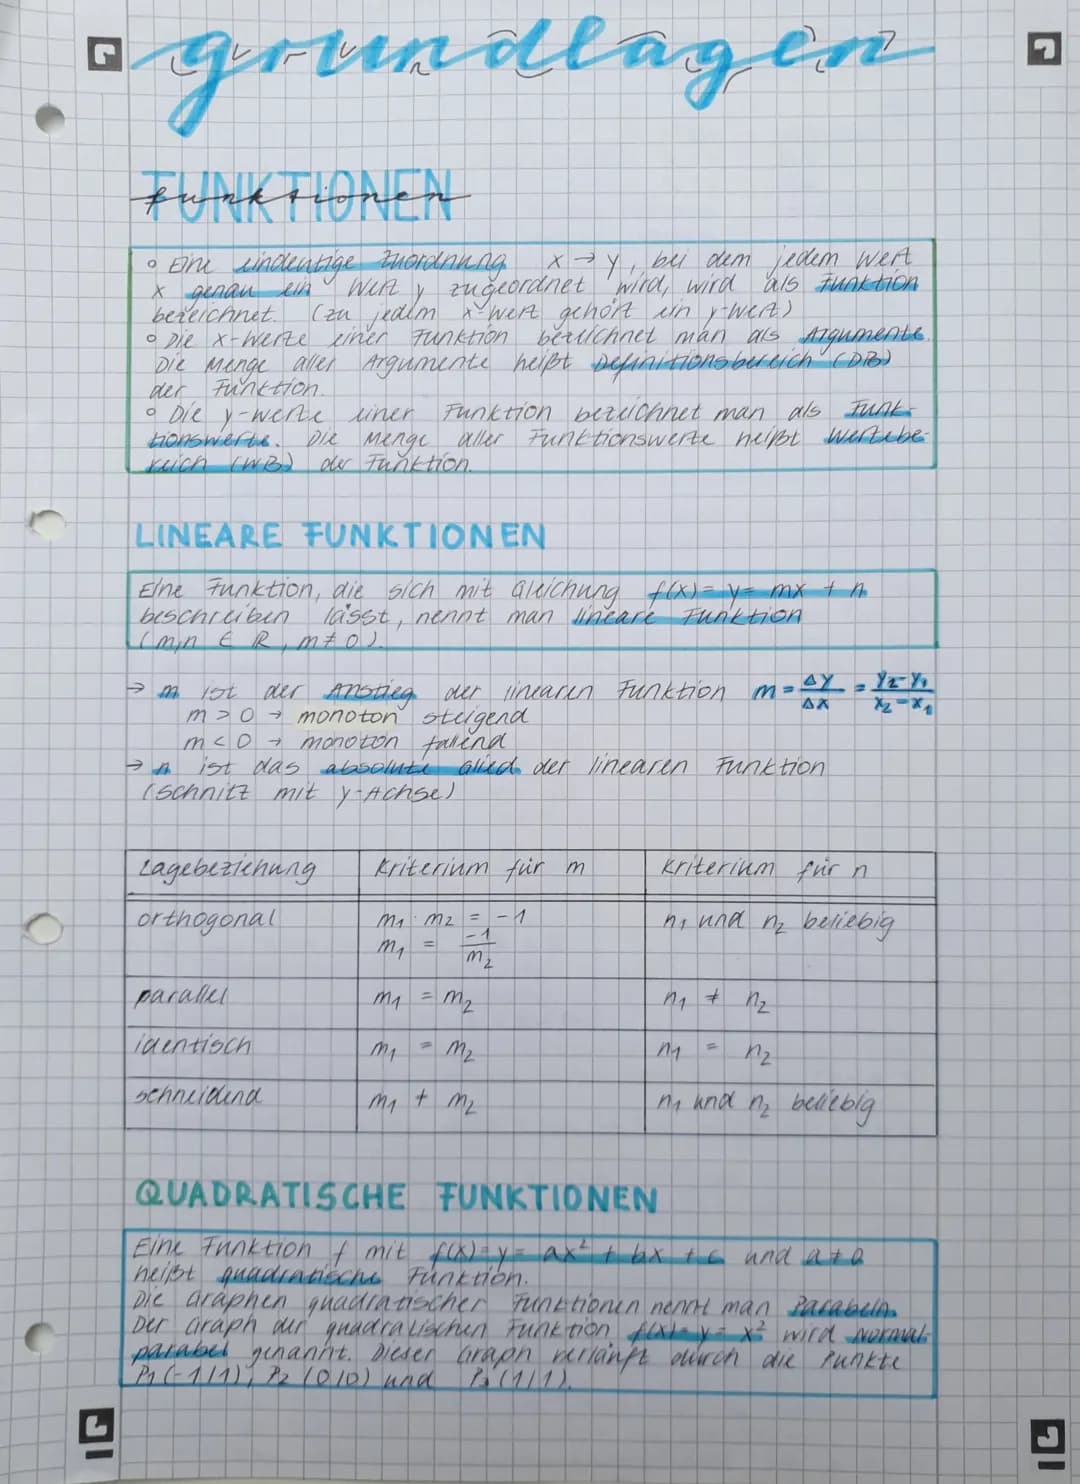 grundlagen
FUNKTIONEN
funktionen
° Eine eindeutige Zuordnung x → y, bei dem jedem Wert
x genau ein Wert y zugeordnet wird, wird als Funktion
bezeichnet. (zu jedem x-Wert gehört ein y-Wert)
° Die x-Werte einer Funktion bezeichnet man als Argumente.
Die Menge aller Argumente heißt Definitionsbereich (DB)
der Funktion.
° Die y-Werte einer Funktion bezeichnet man als Funk-
tionswerte. Die Menge aller Funktionswerte heißt Wertebe-
reich (WB) der Funktion.
LINEARE FUNKTIONEN
Eine Funktion, die sich mit Gleichung f(x) = y = mx + n
beschreiben lässt, nennt man lineare Funktion
(m,n ∈ ℝ, m ≠ 0).
→ m ist der Anstieg der linearen Funktion m = Δy/Δx = y₂-y₁/x₂-x₁
m > 0 → monoton steigend
m < 0 → monoton fallend
→ n ist das absolute Glied der linearen Funktion
(Schnitt mit y-Achse)
Lagebeziehung Kriterium für m Kriterium für n
orthogonal m₁ · m₂ = -1 n₁ und n₂ beliebig
m₁ = -1/m₂
parallel m₁ = m₂ n₁ ≠ n₂
identisch m₁ = m₂ n₁ = n₂
schneidend m₁ ≠ m₂ n₁ und n₂ beliebig
QUADRATISCHE FUNKTIONEN
Eine Funktion f mit f(x) = y = ax² + bx + c und a ≠ 0
heißt quadratische Funktion.
Die Graphen quadratischer Funktionen nennt man Parabeln.
Der Graph der quadratischen Funktion f(x) = y = x² wird Normal-
parabel genannt. Dieser Graph verläuft durch die Punkte
P₁(-1/1), P₂ (0/0) und P₃ (1/1).